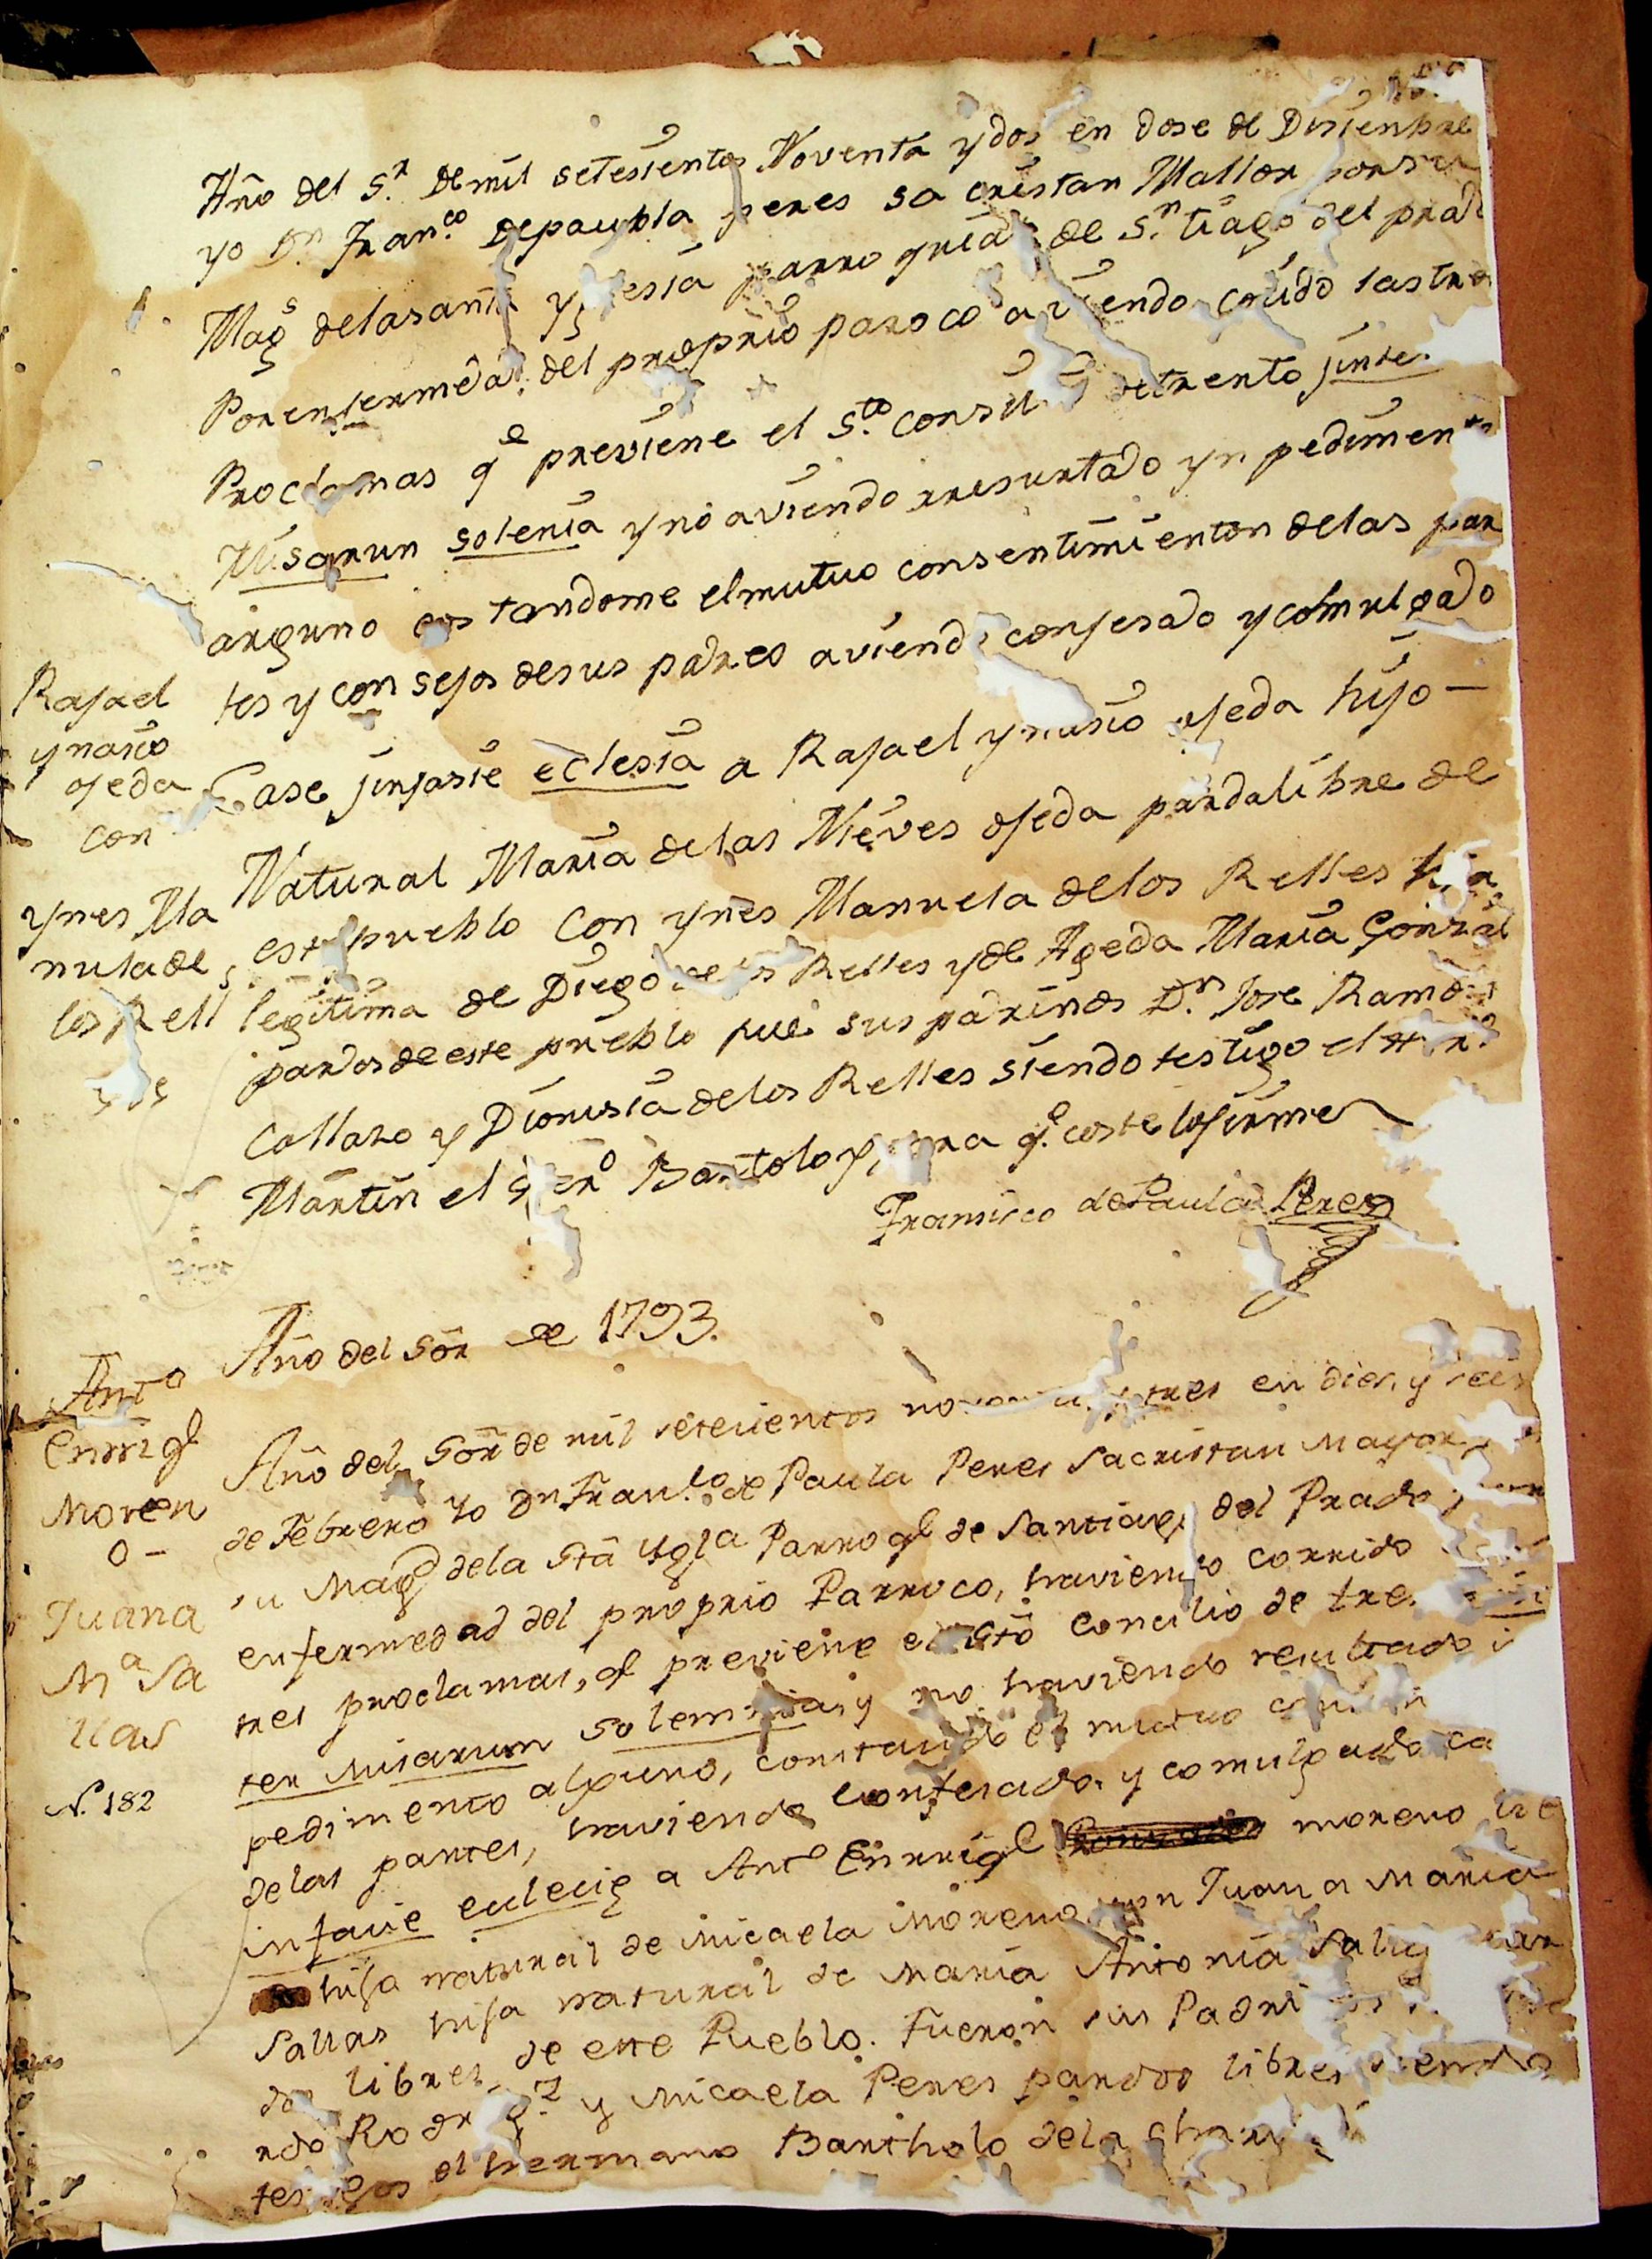 Año del S.r de mil setesientos Noventa y dos en dose de Disienbre
yo D.n Fran.co depaubla peres sa cristan Mallor por su
Mag.s delasanta yglesia parro quia de S.n tiago del prado
Porenfermeda. del proprio paroco aviendo corido las tres
Proclamas q.e previene el S.to consilio detrento jinter
Misarun solenia y no aviendo rresurtado yn pedimento
arguno costandome elmutuo consentimienton delas par
tes y con sejos desus padres aviendo confesado y comulgado
Case jinfasie eclesia a Rafael ynasio ojeda hijo —
Natural Maria delas Nieves ojeda pardalibre de
este pueblo Con ynes Manuela delos Relles hija
legitima de Diego de los Relles y de Ageda Maria Gonzal
pardos de este pueblo fue sus padrinos D.n Jose Ramon
Collazo y Dionisia delos Relles siendo testigo el
Martin el er.o Bartolo para q.e coste lo firme
Fransisco de Paula Perez
Rafael
ynasio
ojeda
con
ynes Ma
nuela de
los Rell
es
Año del Sõr de 1793.
Ant.o
Enrriq.e
Moren
o –
Juana
M.a Sa
llas
N. 182
Año del Sõr de mil setecientos noventa y tres en dies, y seis
de Febrero yo D.n Fran.co de Paula Peres Sacristan Mayor
su Mag.d dela Stã Ygl.a Parroq.l de Santiago del Prado por
enfermedad del proprio Parroco, haviendo corrido
tres proclamas, q.e previene el Stõ Concilio de tren
ter misarum solemnia, y no haviendo resultado i
pedimento alguno, constando el mutuo
delas partes, haviendo confesado, y comulgado ca
infacie eclecie a Ant.o Enrriq.e moreno
hijo natural de Micaela Moreno, con Juana Maria
Sallas hija natural de Maria Antonia Sallas par
dos libres, de este Pueblo. Fueron sus Padri
rdo Rodrig.z y Micaela Peres pardos libres siendo
testigos el hermano Bartholo dela